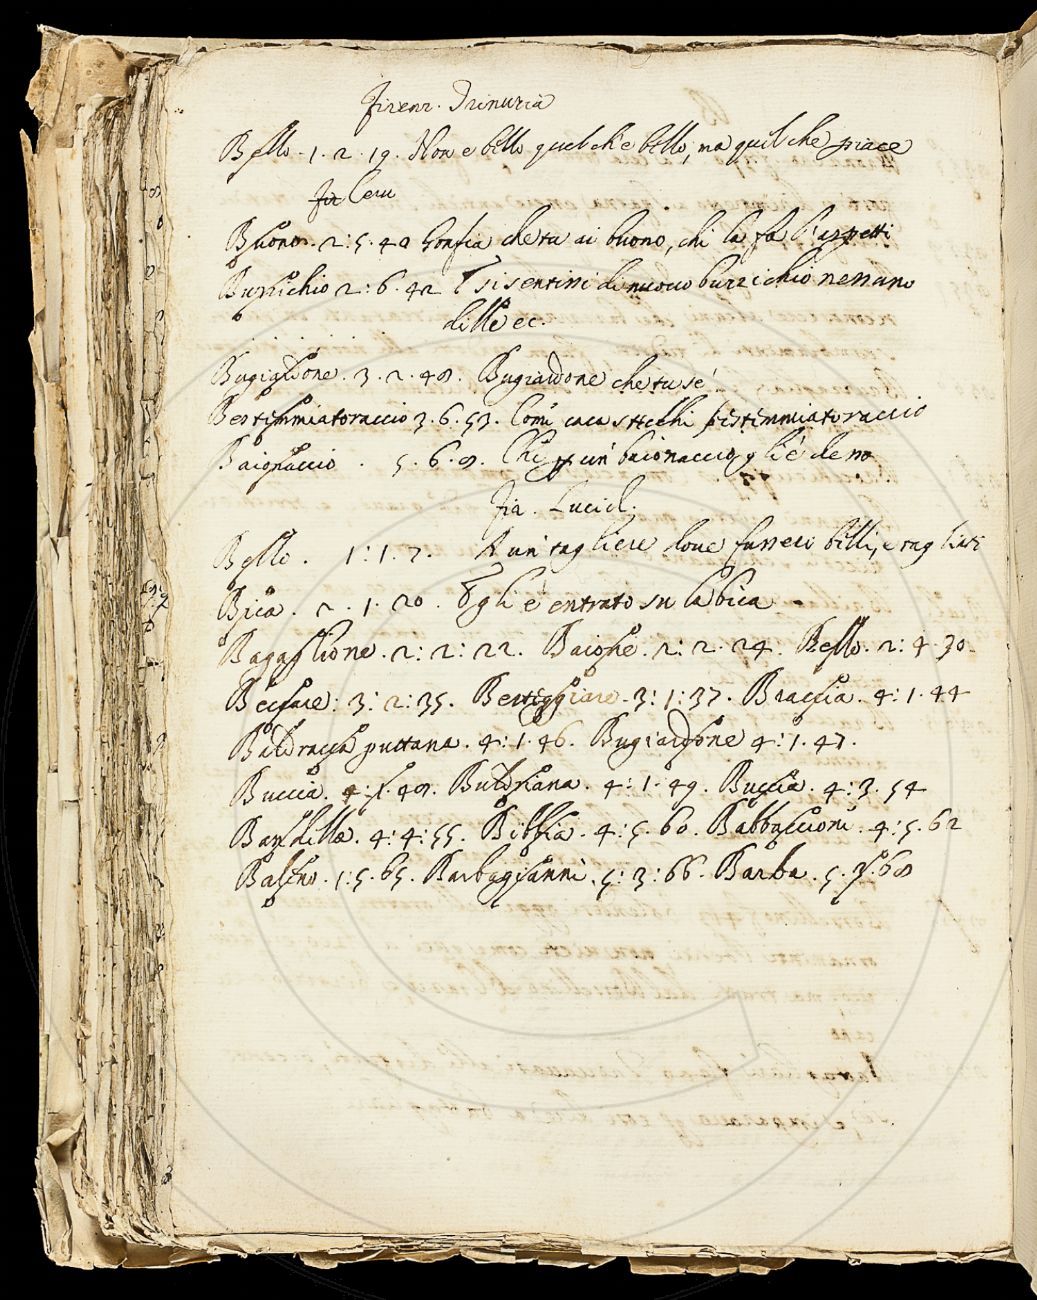 Firenz. Trinuzia
Bello. 1. 2. 19. Non e bello quel ch'e bello, ma quel che piace
Fir
Buono. 2: 5. 40 che tu ai buono, chi la fa l'aspetti
Burrichio 2: 6. 42 si sentissi di nuovo burrichio nessuno
dille ec.
Bugiardone. 3. 2. 48. Bugiardone che tu se'
Bestemmiatoraccio 3. 6. 53. Comi caca stecchi bestemmiatoraccio
Baionaccio. 5. 6. 8. Chi un baionaccio gli è
Fir. Lucid.
Bello. 1: 1. 7. A un tagliere dove fussero belli, e tagliati
Bica. 2. 1. 20. Egli è entrato su la bica
Bagaglione. 2: 2: 22. Baione. 2: 2. 24. Bello. 2: 4. 30.
Beccare: 3: 2: 35. Berteggiare. 3: 1: 37. Braccia. 4: 1. 44
Baldracca puttana. 4: 1. 46. Bugiardone 4: 1. 47.
Buccia. 4: 1. 48. Buldriana. 4: 1. 49. Buccia. 4: 3. 54
4: 4: 55. Bibbia. 4: 5. 60. Babbaccioni. 4: 5. 62
1: 5. 65. Barbagianni. 5: 3: 66. Barba. 5. 7. 68